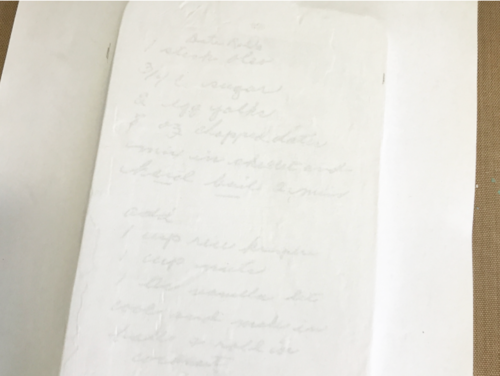 Date Balls
1 stick oleo
3/4 c. sugar
2 egg yolks
8 oz chopped dates
mix in skillet and
boil 2 min
add
1 cup rice krispies
1 cup nuts
1 tsp vanilla let
cool and make in
balls & roll in
coconut.